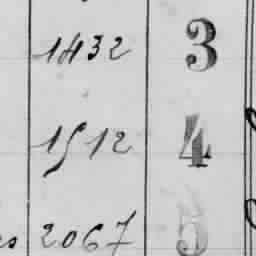 1432 3
1512 4
2067 5